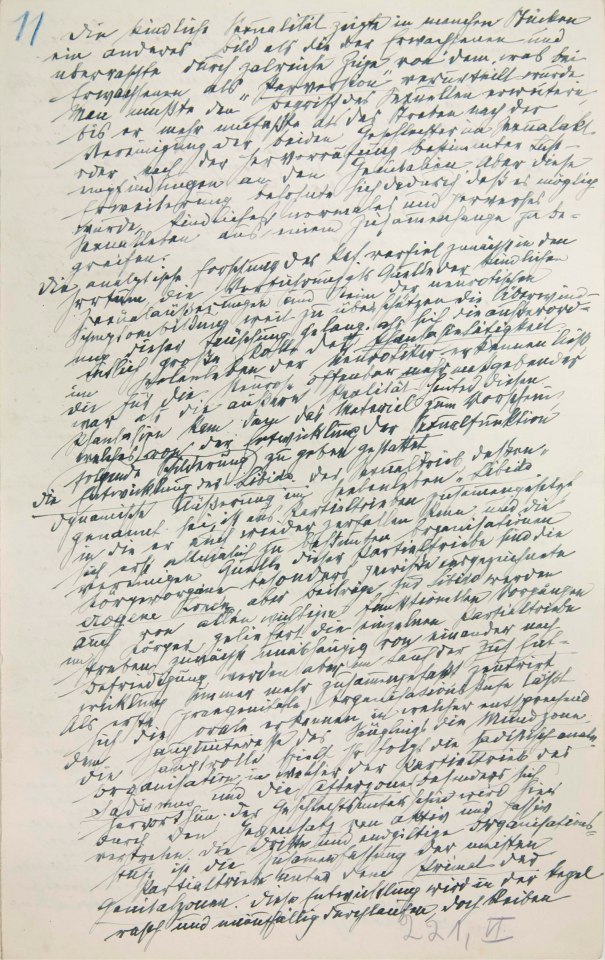 11
Die kindliche Sexualität zeigte in manchen Stücken
ein anderes Bild als die der Erwachsenen und
überraschte durch zalreiche Züge von dem, was bei
Erwachsenen als "Perversion" verurteilt wurde.
Man mußte den Begriff des Sexuellen erweitern,
bis er mehr umfaßte als das Streben nach der
Vereinigung der beiden Geschlechter im Sexualakt
oder nach der Hervorrufung bestimmter Lust-
empfindungen an den Genitalien. Aber diese
Erweiterung belohnte sich dadurch, daß es möglich
wurde, kindliches, normales und perverses
Sexualleben aus einem Zusammenhange zu be-
greifen.
Die analytische Forschung des Ref. verfiel zunächst in den
Irrtum, die Verführung als Quelle der kindlichen
Sexualäußerungen und Keim der neurotischen
Symptombildung weit zu überschätzen. Die Überwind-
ung dieser Täuschung gelang, als sich die außerord-
entlich große Rolle der Phantasietätigkeit
im Seelenleben der Neurotiker erkennen ließ,
die für die Neurose offenbar mehr maßgebend
war als die äußere Realität. Hinter diesen
Phantasien kam dann das Material zum Vorschein,
welches von der Entwicklung der Sexualfunktion
folgende Schilderung zu geben gestattet.
Die Entwicklung der Libido. Der Sexualtrieb, dessen
dynamische Äußerung im Seelenleben "Libido"
genannt sei, ist aus Partialtrieben zusammengesetzt,
in die er auch wieder zerfallen kann, und die
sich erst allmälich zu bestimmten Organisationen
vereinigen. Quelle dieser Partialtriebe sind die
Körperorgane, besonders gewisse ausgezeichnete
erogene Zonen, aber Beiträge zur Libido werden
auch von allen wichtigen funktionellen Vorgängen
im Körper geliefert. Die einzelnen Partialtriebe
streben zunächst unabhängig von einander nach
Befriedigung, werden aber im Lauf der Entwicklung
immer mehr zusammengefaßt, zentrirt.
Als erste (praegenitale) Organisationsstufe läßt
sich die orale erkennen, in welcher entsprechend
dem Hauptinteresse des Säuglings die Mundzone
die Hauptrolle spielt. Ihr folgt die sadistisch-anale
Organisation, in welcher der Partialtrieb des
Sadismus und die Afterzone besonders sich
hervorthun; der Geschlechtsunterschied wird hier
durch den Gegensatz von aktiv und passiv
vertreten. Die dritte und endgiltige Organisations-
stufe ist die Zusammenfassung der meisten
Partialtriebe unter dem Primat der
Genitalzonen. Diese Entwicklung wird in der Regel
rasch und unauffällig durchlaufen, doch bleiben
221, VI